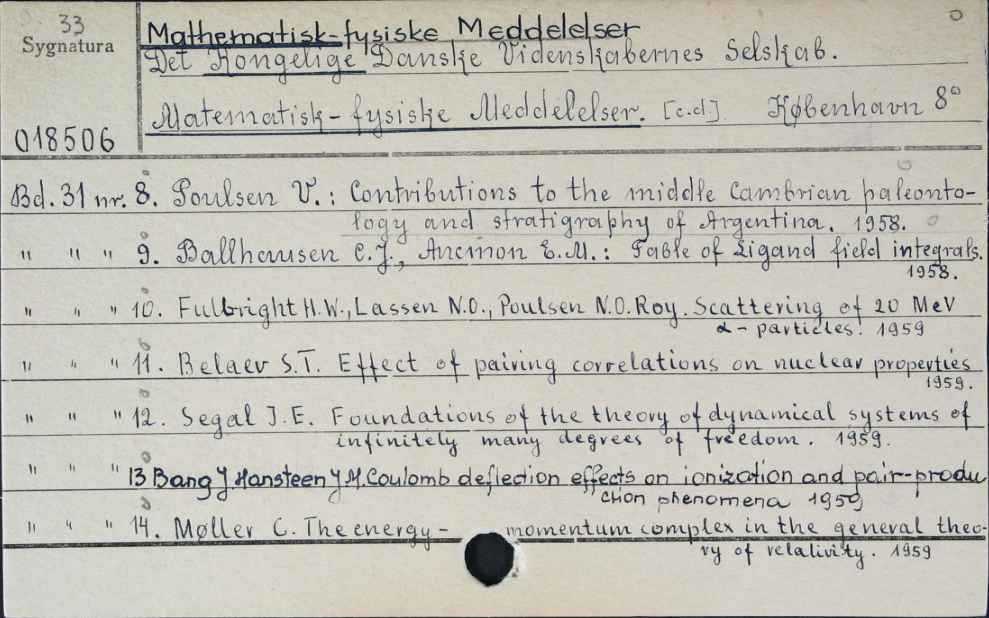 33
Sygnatura
018506
Mathematisk-fysiske Meddelelser
Det Kongelige Danske Videnskabernes Selskab.
Matematisk-fysiske Meddelelser. [c.d.] København 8°
Bd. 31 nr. 8. Poulsen V.: Contributions to the middle Cambrian paleonto-
logy and stratigraphy of Argentina. 1958.
" " " 9. Ballhausen C.J., Ancmon E.M.: Table of Ligand field integrals.
1958.
" " " 10. Fulbright H.W., Lassen N.O., Poulsen N.O. Roy. Scattering of 20 MeV
α-particles. 1959
" " " 11. Belaev S.T. Effect of pairing correlations on nuclear properties
1959.
" " " 12. Segal J.E. Foundations of the theory of dynamical systems of
infinitely many degrees of freedom. 1959.
" " " 13 Bang J. Hansteen J.M. Coulomb deflection effects on ionization and pair-produ
ction phenomena 1959
" " " 14. Møller C. The energy-momentum complex in the general theo-
ry of relalivity. 1959